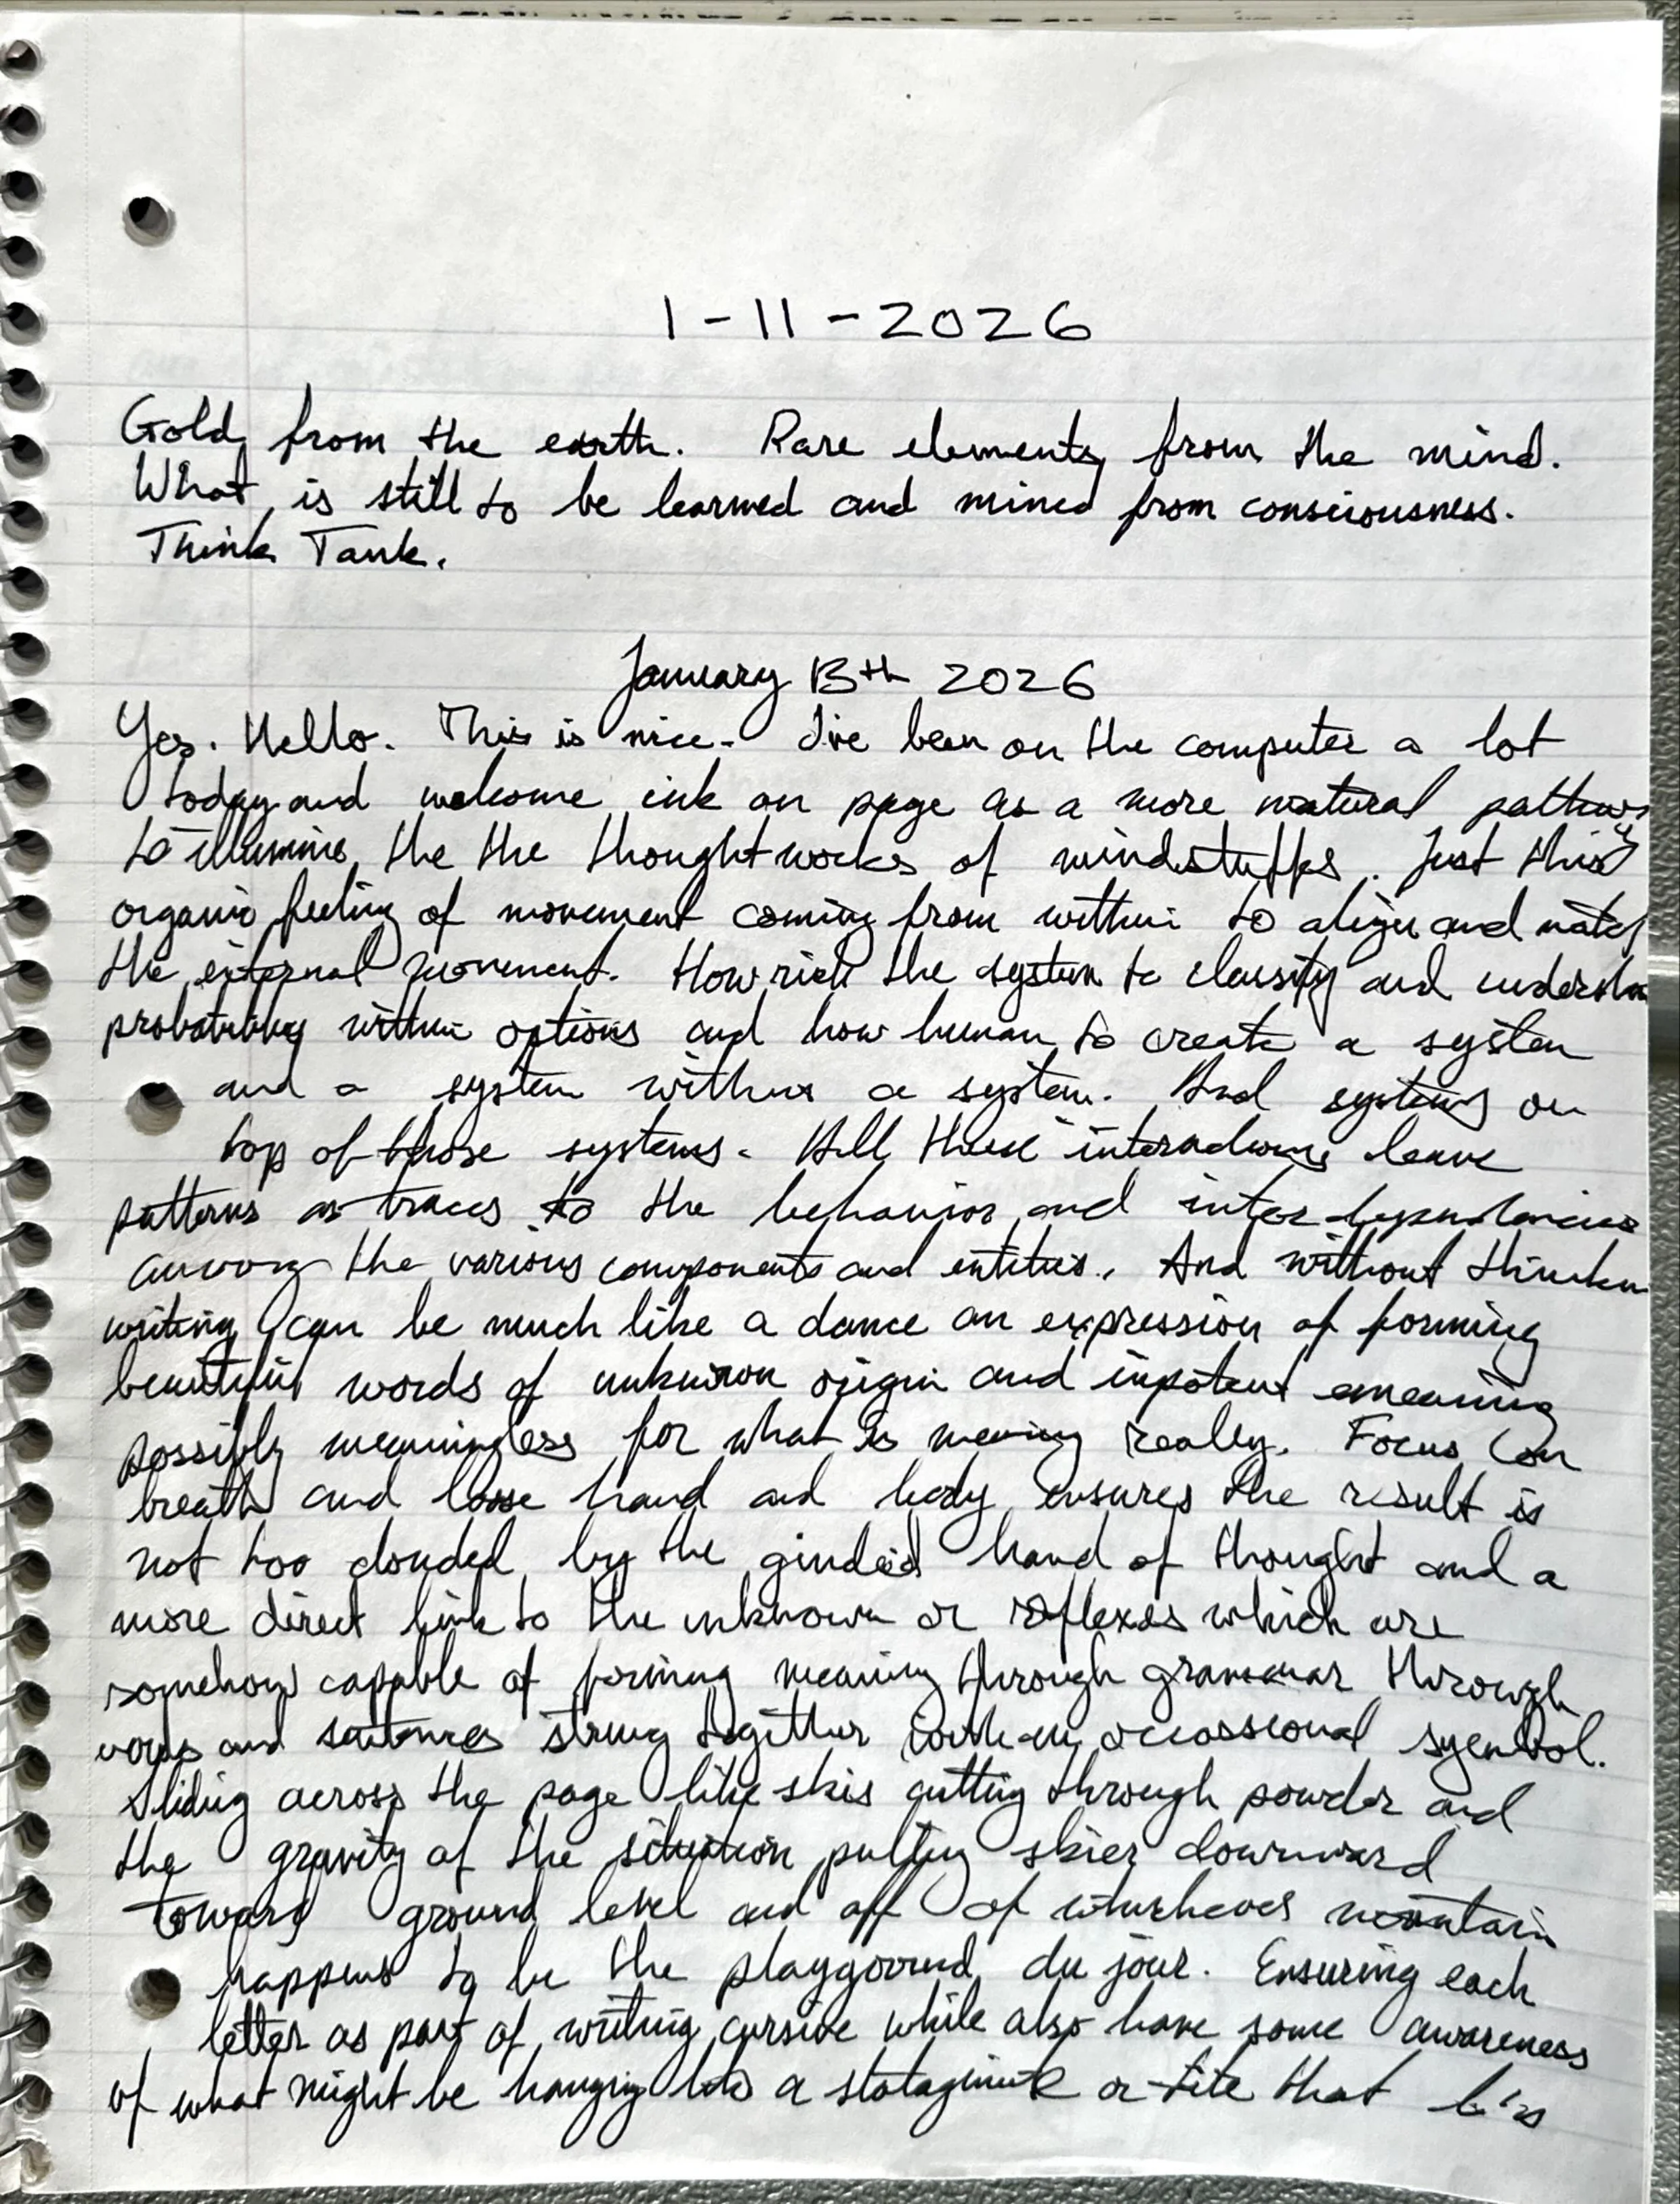 1-11-2026
Gold from the earth. Rare elements from the mind.
What is still to be learned and mined from consciousness.
Think Tank.
January 13th 2026
Yes. Hello. This is nice. I've been on the computer a lot
today and welcome ink on page as a more natural pathway
to illumine the the thoughtworks of mindstuffs. Just this
organic feeling of movement coming from within to align and match
the external movement. How rich the system to classify and
probability within options and how human to create a system
and a system within a system. And systems on
top of those systems. All these interactions leave
patterns as traces to the behavior and inter dependancies
among the various components and entities. And without
writing can be much like a dance an expression of forming
beautiful words of unknown origin and
possibly meaningless for what is meaning really. Focus on
breath and loose hand and body ensures the result is
not too clouded by the hand of thought and a
more direct link to the unknown or reflexes which are
somehow capable of forming meaning through grammar through
words and sentences strung together with an occassional symbol.
Sliding across the page like skis cutting through powder and
the gravity of the situation pulling skier downward
toward ground level and off of mountain
happens to be the playground du jour. Ensuring each
letter as part of writing cursive while also have some awareness
of what might be hanging a or tite that